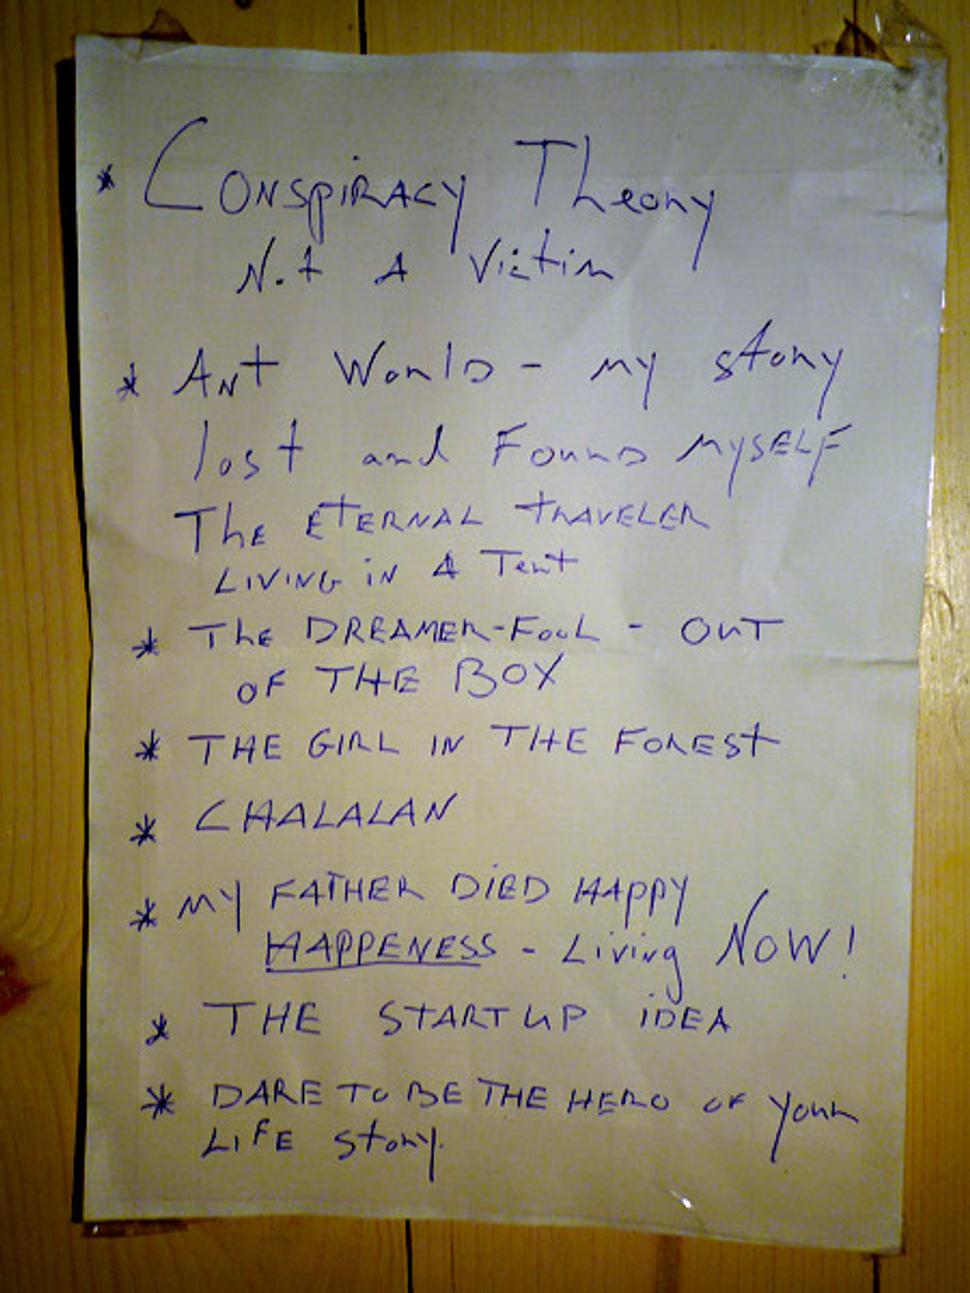 * CONSPIRACY Theory
Not A Victim
* ANt World - my story
lost and Found MYSELF
The ETERNAL tRAVELER
LIVING in A Tent
* The DREAMER-FOOL - OUT
OF THE BOX
* THE GIRL IN THE FOREST
* CHALALAN
* MY FATHER DiED HAppy
HAPPENESS - Living NOW!
* THE STARTUP iDEA
* DARE To BE THE HERO OF your
LIFE story.